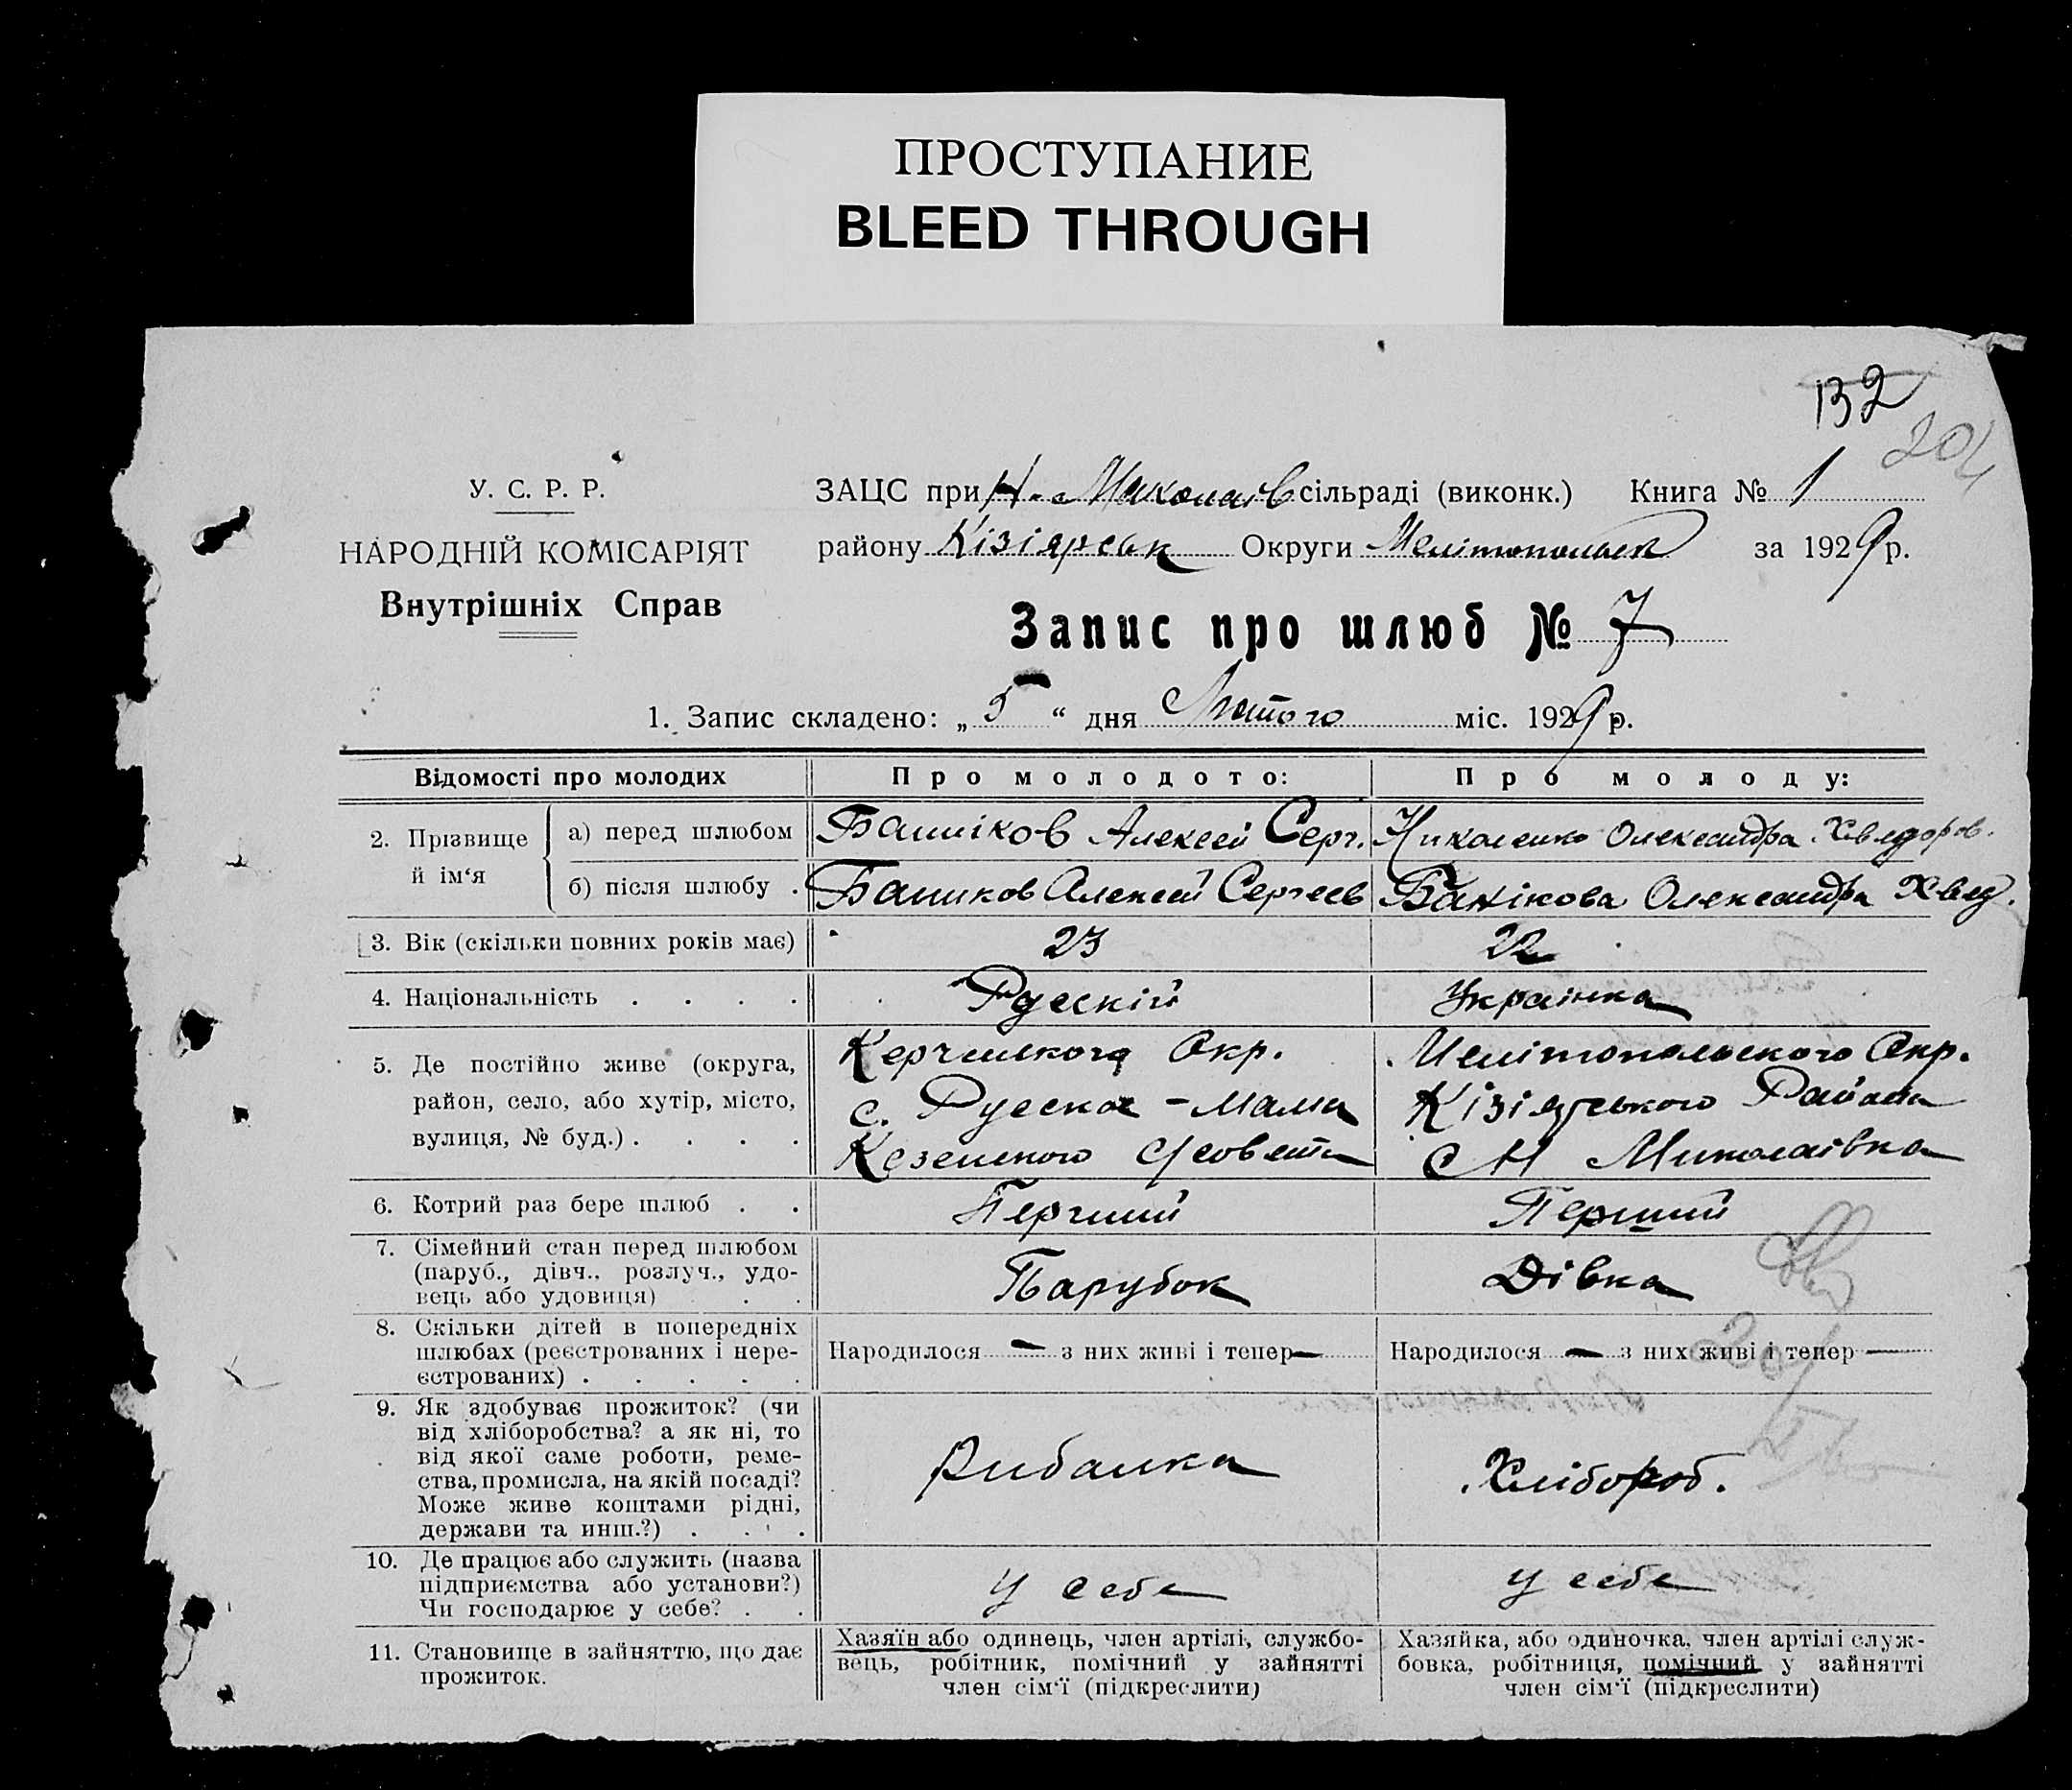 ПРОСТУПАНИЕ
BLEED THROUGH
132
204
У. С. Р. Р.
НАРОДНІЙ КОМІСАРІЯТ
Внутрішніх Справ
ЗАЦС при Н. Миколаїв сільраді (виконк.) Книга № 1
району Кізіярськ Округи Мелітопольск за 1929 р.
Запис про шлюб № 7
1. Запис складено: „5“ дня Лютого міс. 1929 р.
Відомості про молодих
Про молодого:
Про молоду:
2. Прізвище й ім‘я
а) перед шлюбом
Банніков Алексей Серг.
Николенко Олександра Хведоров.
б) після шлюбу .
Баников Алексей Сергеев
Банікова Олександра Хвед.
3. Вік (скільки повних років має)
23
22
4. Національність . . . .
Рускій
Українка
5. Де постійно живе (округа,
район, село, або хутір, місто,
вулиця, № буд.) . . . .
Керченского Окр.
с. Руская - Мама
Мелітопольского Окр.
Кізіярського Района
с Н Миколаівка
6. Котрий раз бере шлюб . .
Перший
Перший
7. Сімейний стан перед шлюбом
(паруб., дівч., розлуч., удо-
вець або удовиця) . .
Парубок
Дівка
8. Скільки дітей в попередніх
шлюбах (реєстрованих і нере-
єстрованих) . . . . .
Народилося — з них живі і тепер —
Народилося — з них живі і тепер —
9. Як здобуває прожиток? (чи
від хліборобства? а як ні, то
від якої саме роботи, реме-
ства, промисла, на якій посаді?
Може живе коштами рідні,
держави та инш.?) . . .
Рибалка
Хлібороб.
10. Де працює або служить (назва
підприємства або установи?)
Чи господарює у себе? . .
у себе
у себе
11. Становище в зайняттю, що дає
прожиток.
Хазяїн або одинець, член артілі, службо-
вець, робітник, помічний у зайнятті
член сім‘ї (підкреслити)
Хазяйка, або одиночка, член артілі служ-
бовка, робітниця, помічний у зайнятті
член сім‘ї (підкреслити)